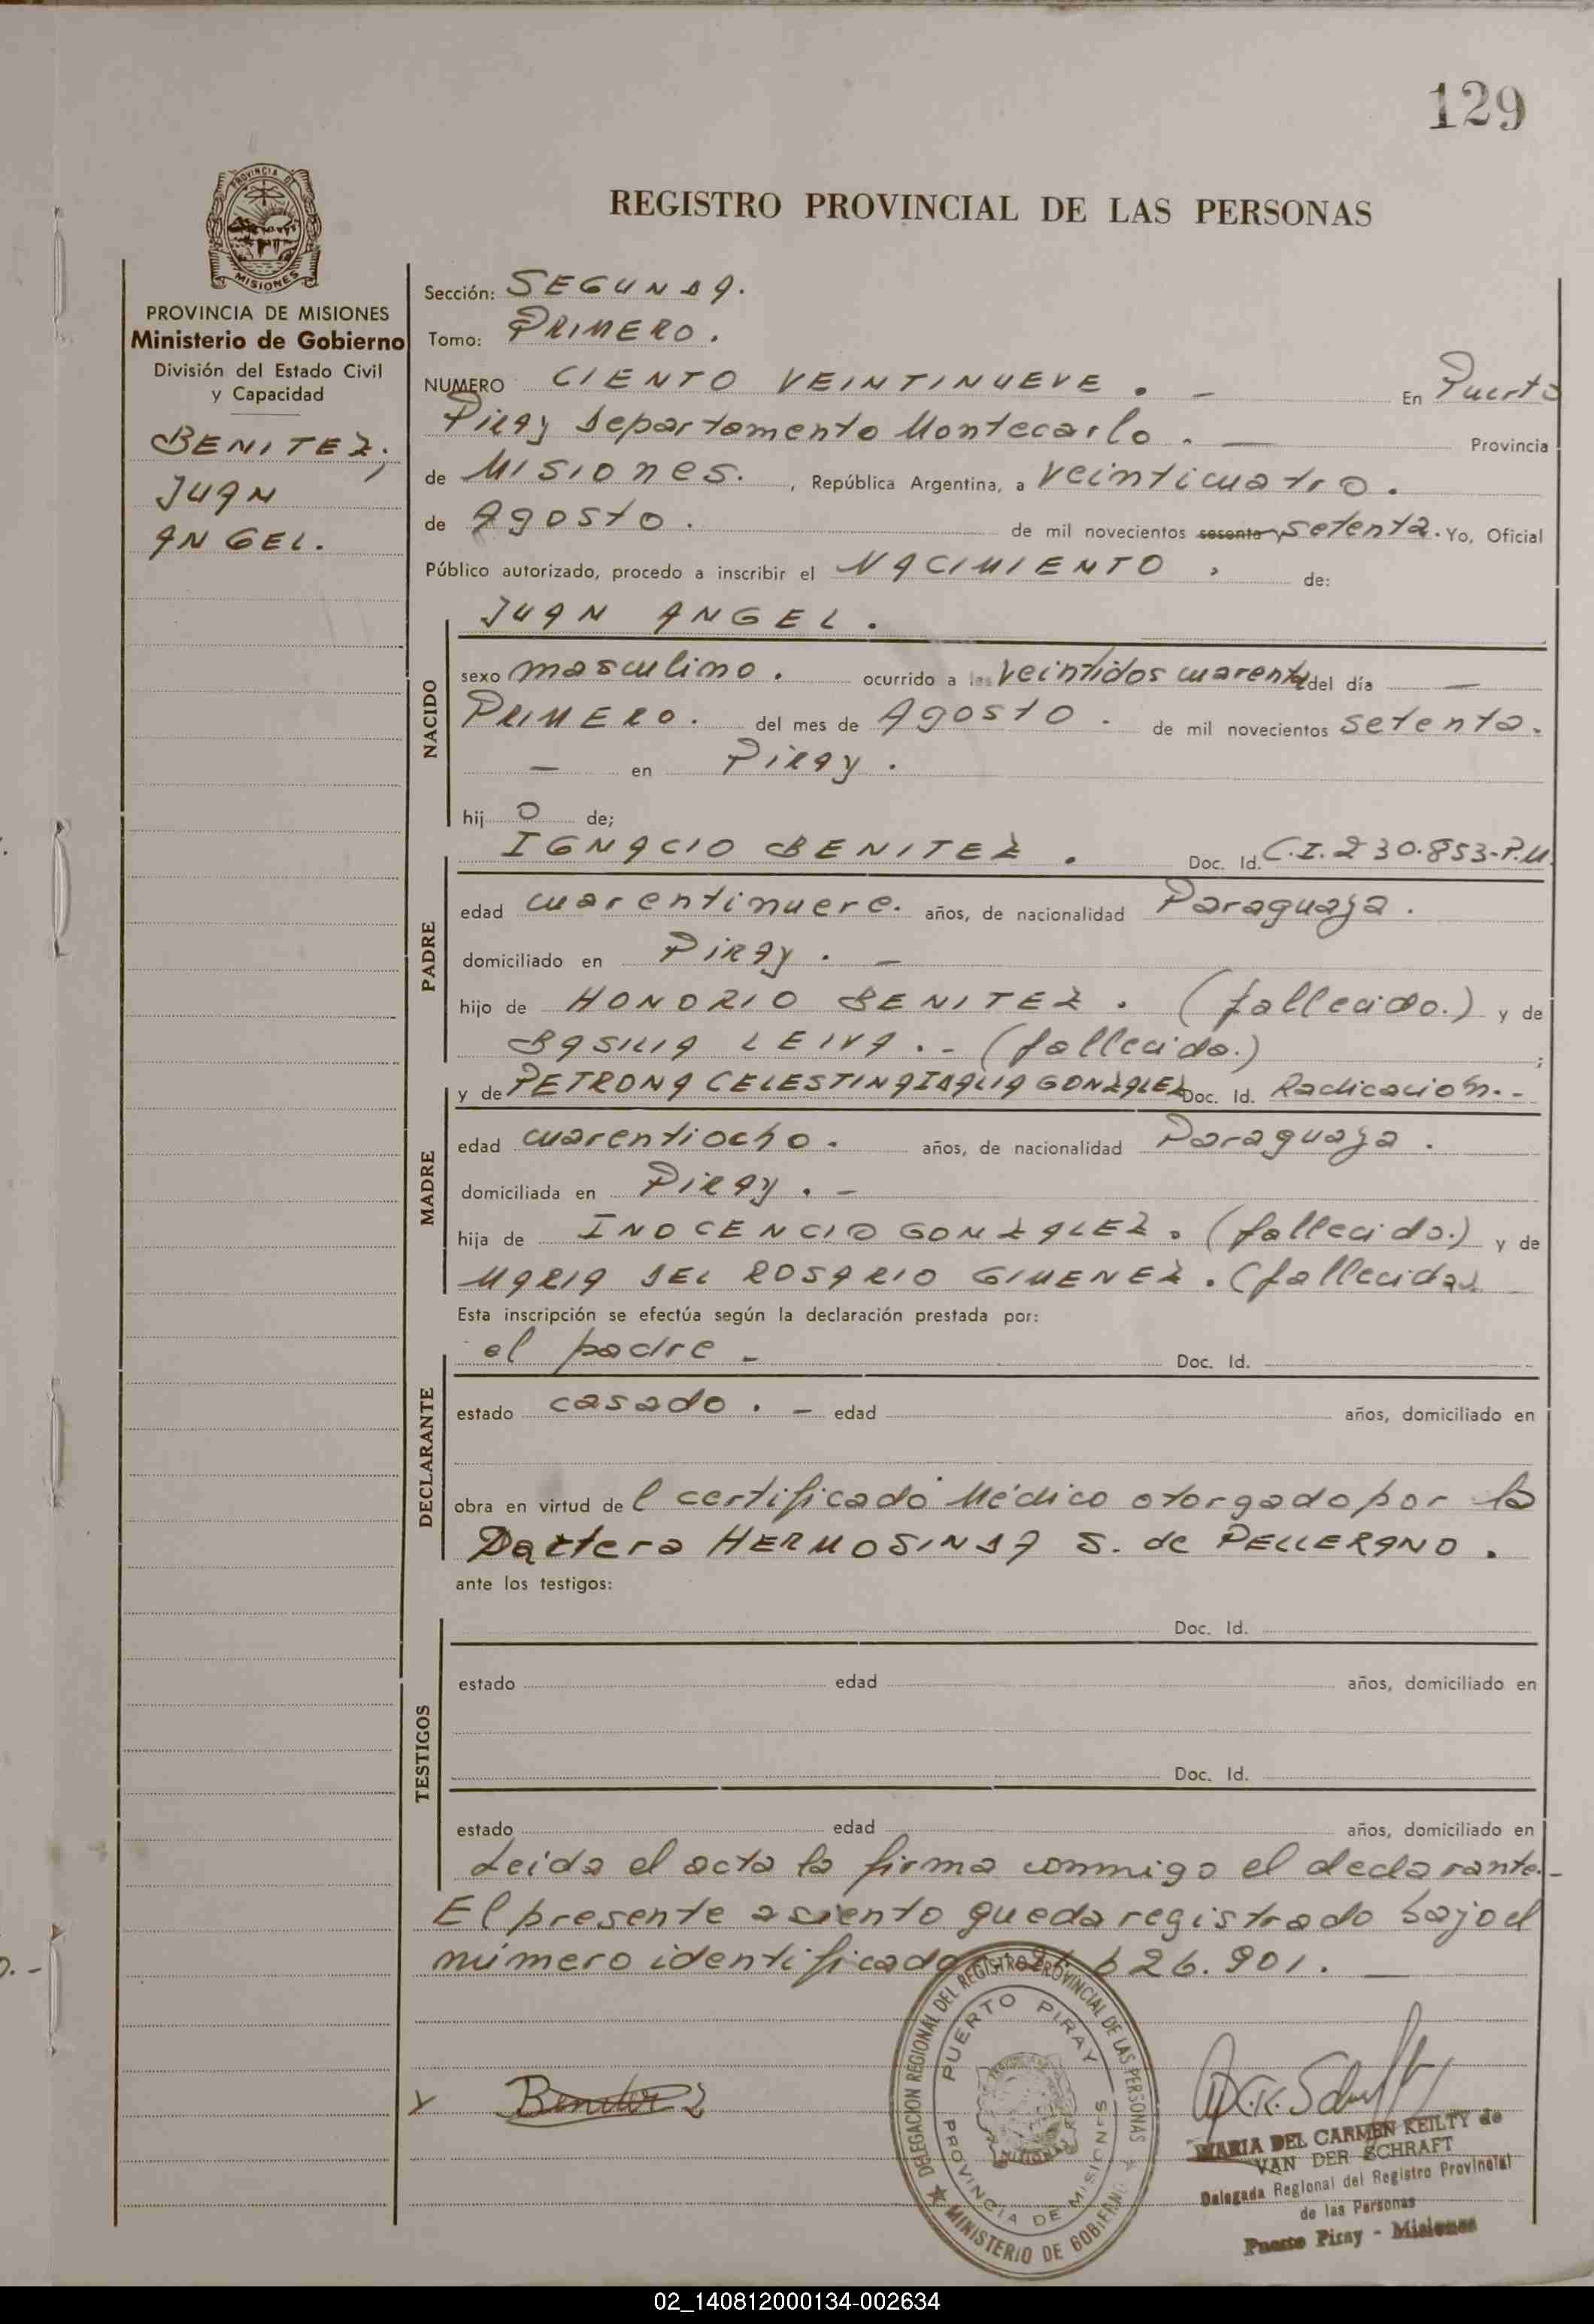 129
PROVINCIA DE
MISIONES
PROVINCIA DE MISIONES
Ministerio de Gobierno
División del Estado Civil
y Capacidad
BENITEZ;
JUAN
ANGEL.
REGISTRO PROVINCIAL DE LAS PERSONAS
Sección: SEGUNDA.
Tomo: PRIMERO.
NUMERO CIENTO VEINTINUEVE. - En Puerto
Piray Departamento Montecarlo. — Provincia
de Misiones. , República Argentina, a veinticuatro.
de Agosto. de mil novecientos sesenta y setenta. Yo, Oficial
Público autorizado, procedo a inscribir el NACIMIENTO . de:
JUAN ANGEL.
NACIDO
sexo masculino. ocurrido a las veintidos cuarenta del día —
PRIMERO. del mes de Agosto. de mil novecientos setenta.
— en Piray.
hij o de;
IGNACIO BENITEZ. Doc. Id. C.I. 230.853-P.M.
PADRE
edad cuarentinueve. años, de nacionalidad Paraguaya.
domiciliado en Piray. -
hijo de HONORIO BENITEZ. (fallecido.) y de
BASILIA LEIVA. - (fallecida.) ;
y de PETRONA CELESTINA IDALIA GONZALEZ Doc. Id. Radicación. -
MADRE
edad cuarentiocho. años, de nacionalidad Paraguaya.
domiciliada en Piray. -
hija de INOCENCIO GONZALEZ. (fallecido.) y de
MARIA DEL ROSARIO GIMENEZ. (fallecida)
Esta inscripción se efectúa según la declaración prestada por:
el padre - Doc. Id.
DECLARANTE
estado casado. - edad años, domiciliado en
obra en virtud de l certificado Médico otorgado por la
Doctora HERMOSINDA S. de PELLERANO.
ante los testigos:
Doc. Id.
TESTIGOS
estado edad años, domiciliado en
Doc. Id.
estado edad años, domiciliado en
Leida el acta la firma conmigo el declarante. -
El presente asiento queda registrado bajo el
número identificado 626.901. —
Benitez
DELEGACION REGIONAL DEL REGISTRO PROVINCIAL DE LAS PERSONAS
MINISTERIO DE GOBIERNO
PUERTO PIRAY
PROVINCIA DE MISIONES
MARIA DEL CARMEN KEILTY de
VAN DER SCHRAFT
Delegada Regional del Registro Provincial
de las Personas
Puerto Piray - Misiones
02_140812000134-002634